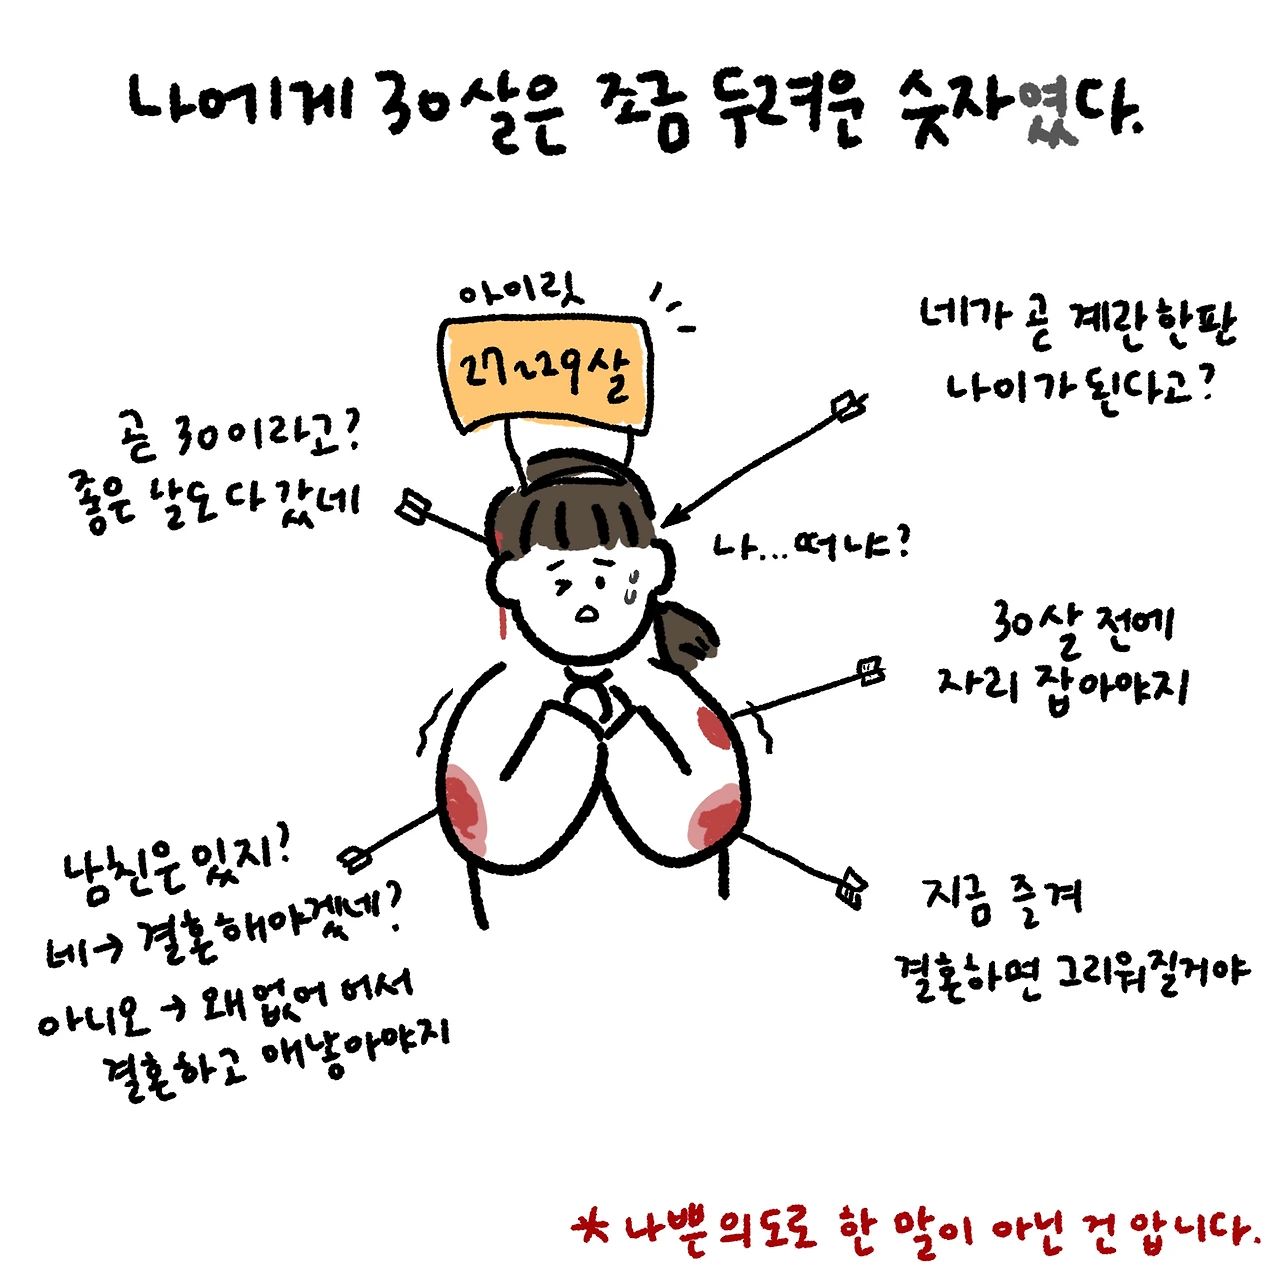 나에게 30살은 조금 두려운 숫자였다.
아이릿
27~29살
네가 곧 계란한판
나이가 된다고?
곧 30이라고?
좋은 날도 다 갔네
나...떠냐?
30살 전에
자리 잡아야지
남친은 있지?
네→ 결혼해야겠네?
아니오→ 왜 없어 어서
결혼하고 애낳아야지
지금 즐겨
결혼하면 그리워질거야
* 나쁜의도로 한 말이 아닌 건 압니다.